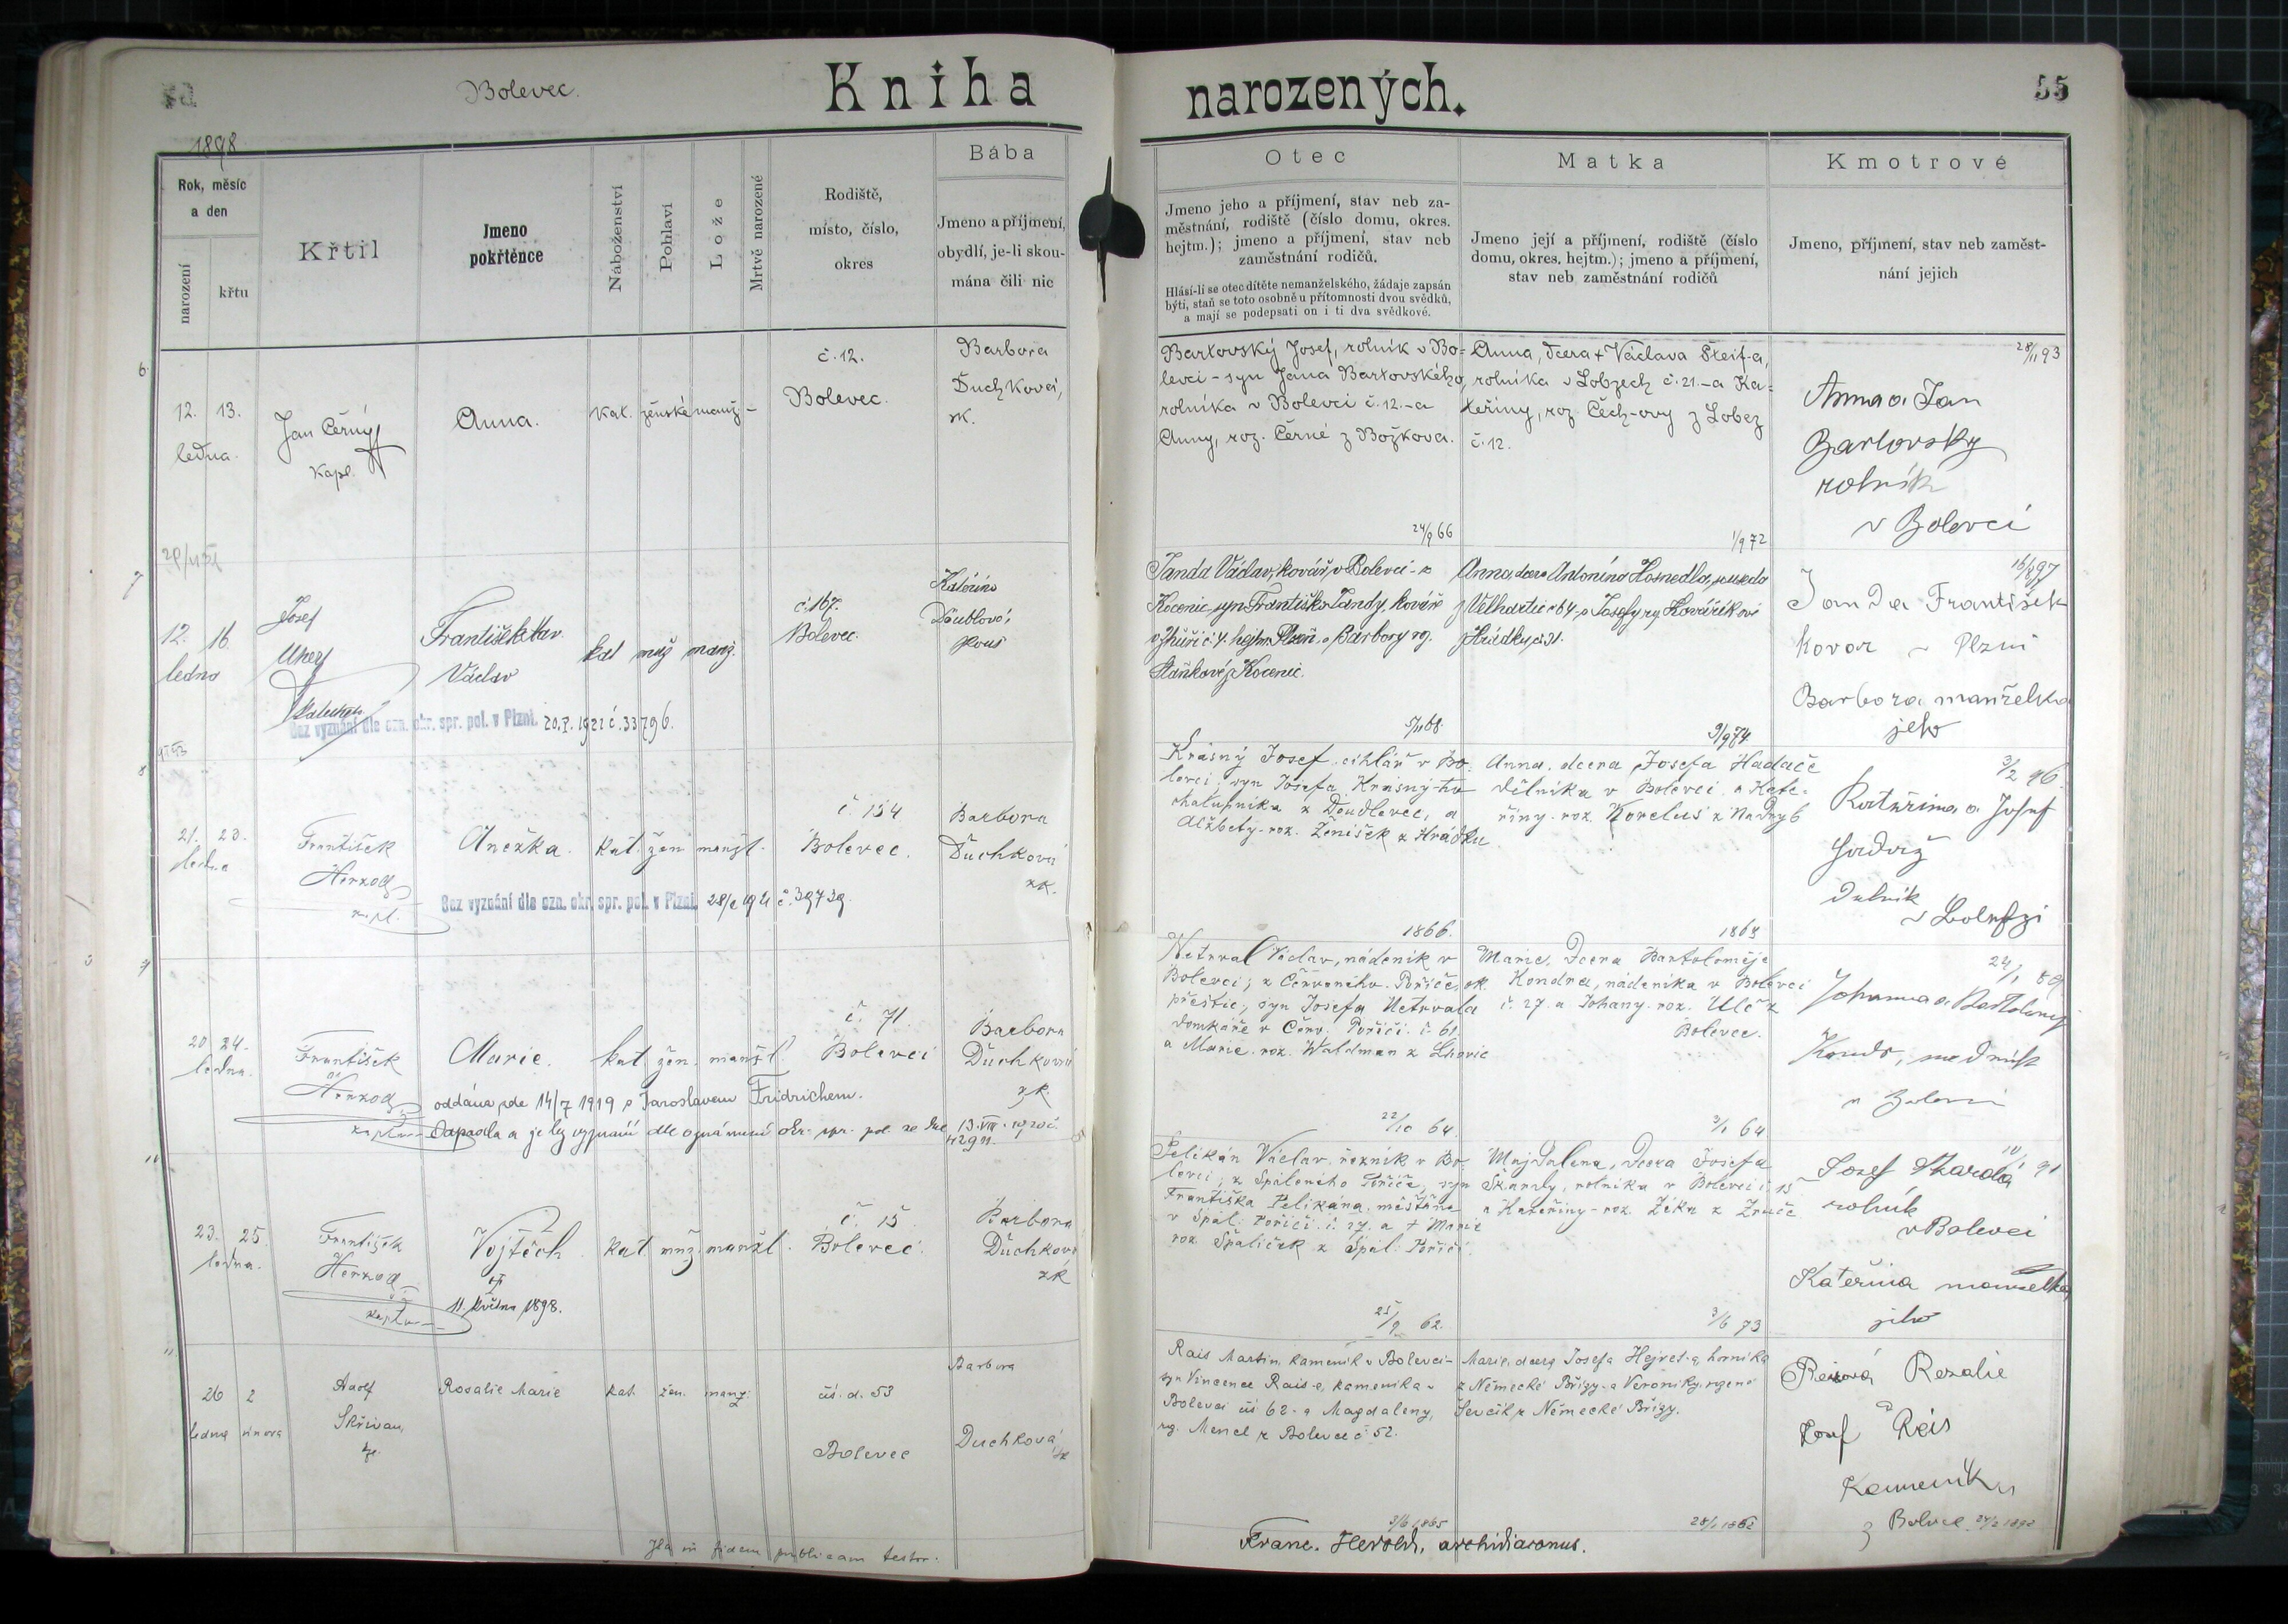 Bolevec.
Kniha
narozených.
55
1898
Rok, měsíc
a den
narození
křtu
Křtil
Jmeno
pokřtěnce
Náboženství
Pohlaví
Lože
Mrtvě narozené
Rodiště,
místo, číslo,
okres
Bába
Jmeno a příjmení,
obydlí, je-li skou-
mána čili nic
Otec
Jmeno jeho a příjmení, stav neb za-
městnání, rodiště (číslo domu, okres.
hejtm.); jmeno a příjmení, stav neb
zaměstnání rodičů.
Hlásí-li se otec dítěte nemanželského, žádaje zapsán
býti, staň se toto osobně u přítomnosti dvou svědků,
a mají se podepsati on i ti dva svědkové.
Matka
Jmeno její a příjmení, rodiště (číslo
domu, okres. hejtm.); jmeno a příjmení,
stav neb zaměstnání rodičů
Kmotrové
Jmeno, příjmení, stav neb zaměst-
nání jejich
6
12. 13.
ledna.
Jan Černý
kapl.
Anna.
kat. ženské manž-
č. 12.
Bolevec.
Barbora
Duchková,
zk.
Bartovský Josef, rolník v Bo-
levci - syn Jana Bartovského,
rolníka v Bolevci č. 12. - a
Anny, roz. Černé z Božkova.
24/9 66
Anna, dcera + Václava Šteif-a,
rolníka v Lobzech č. 21. - a Ka-
teřiny, roz. Čech-ovy z Lobez
č. 12.
1/9 72
28/11 93
Anna a Jan
Bartovský
rolník
v Bolevci
7
12. 16.
ledna
Josef
František
Václav
kat muž manž.
č. 167.
Bolevec.
Bez vyznání dle ozn. okr. spr. pol. v Plzni. 20.I. 1921 č. 33796.
Janda Václav, kovář v Bolevci - z
Kocenic, syn Františka Jandy, kováře
Kocenic.
5/11 68
Anna, dcera Antonína Hosnedla, souseda
z Velhartic č 64, a Josefy roz. Kovaříkovi
z Hrádku, č. 31.
9/9 74
16/8 97
Janda František
kovar v Plzni
Barbora manželka
jeho
8
21. 23.
ledna
František
Herzog
kapl.
Anežka.
kat. žen manžl.
č 134
Bolevec.
Barbora
Duchková
zk.
Bez vyznání dle ozn. okr. spr. pol. v Plzni 28/2 1921 č. 39739.
Krásný Josef, cihlář v Bo-
levci, syn Josefa Krásný-ho
chalupníka z Doudlevec, a
Alžběty, roz. Ženíšek z Hrádku
1866.
Anna, dcera Josefa Hadače
dělníka v Bolevci, a Kate-
řiny, roz. Korelus z Nadryb
3/2 96.
Kateřina a Josef
9
20 24.
ledna.
František
Herzog
kaplan
Marie.
kat žen. manžl.
č. 71
Bolevci
Barbora
Duchková
zk.
oddána zde 14/7 1919 s Jaroslavem Fridrichem.
Netrval Václav, nádeník v
Bolevci, z Červeného Poříčí, ok.
přeštic, syn Josefa Netrvala
domkáře v Červ. Poříčí č. 61
a Marie roz. Waldman z Lhovic
22/10 64.
Marie, dcera Bartoloměje
Kondra, nádeníka v Bolevci
č. 27. a Johany roz. Ulč z
Bolevec.
3/1 64
24/1 89
Johanna a Bartolomej
10
23. 25.
ledna.
František
Herzog
kaplan
Vojtěch
11. května 1898.
kat muž. manžl.
č. 15
Bolevec.
Barbora
Duchková
zk
Pelikán Václav, řezník v Bo-
levci, z Spáleného Poříčí, syn
Františka Pelikána, měšťana
v Spál. Poříčí č. 27. a + Marie
roz. Špaliček z Spál. Poříčí.
25/9 62.
Majdalena, dcera Josefa
Škardy, rolníka v Bolevci č. 15
a Kateřiny - roz. Žáka z Zruče
3/6 73
Josef Škarda
rolník
v Bolevci
Kateřina manželka
jeho
11
26 2
ledna února
Adolf
Skřivan,
Rosalie Marie
kat. žen. manž.
čís. d. 53
Bolevec
Barbora
Duchková
zk
Rais Martin, kameník v Bolevci -
syn Vincence Rais-e, kameníka v
Bolevci čís 62. a Magdaleny,
roz. Mencl z Bolevce č 52.
3/6 1865
Marie, dcera Josefa Hejret-a, horníka
z Německé Břízy - a Veroniky, rozené
Ševčík z Německé Břízy.
Reisová Rozalie
Josef Reis
Kameník
z Bolevce
Ita in fidem publicam testor.
Franc. Herold, archidiaconus.